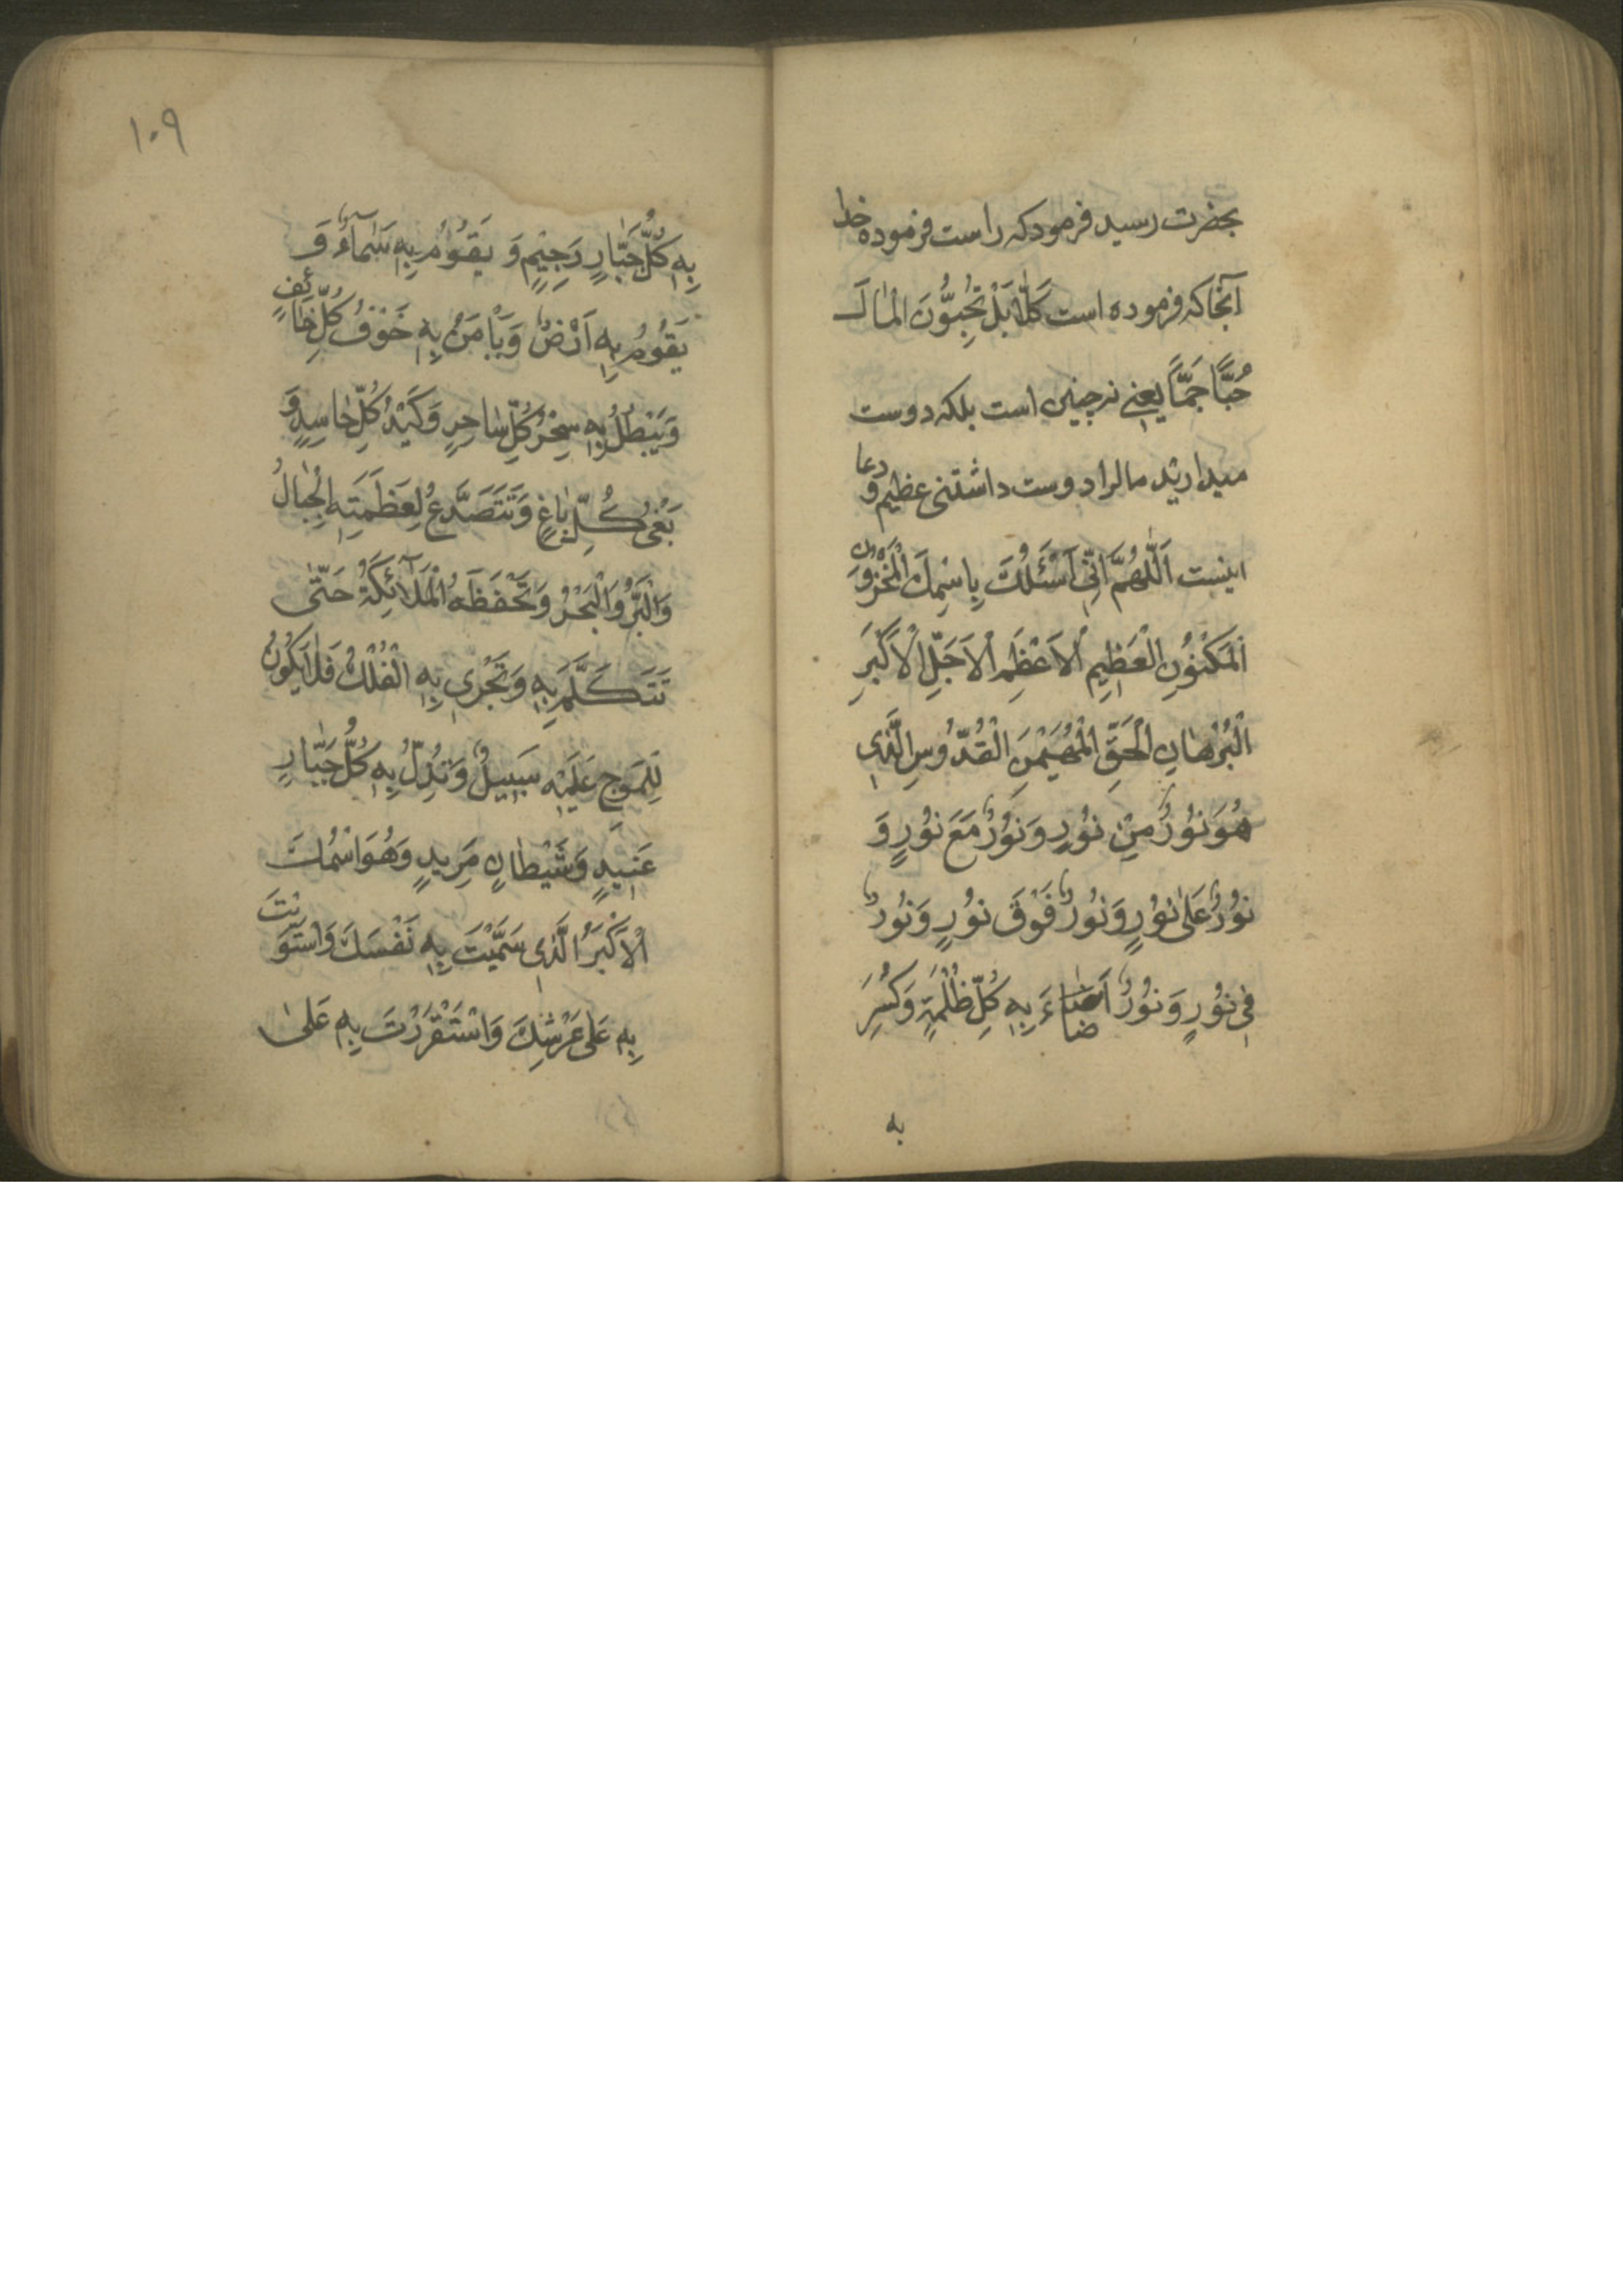 بحضرت رسید فرمود که راست فرموده خدا
آنجا که فرموده است كَلّٰا بَلْ تُحِبُّونَ الْمٰالَ
حُبًّا جَمًّا یعنے نه چنین است بلکه دوست
میدارید مال را دوست داشتنی عظیم و دعا
اینست اَللّٰهُمَّ اِنّٖى اَسْئَلُكَ بِاسْمِكَ الْمَخْزُونِ
الْمَكْنُونِ الْعَظِيمِ الْاَعْظَمِ الْاَجَلِّ الْاَكْبَرِ
الْبُرْهٰانِ الْحَقِّ الْمُهَيْمِنِ الْقُدُّوسِ الَّذٖى
هُوَ نُورٌ مِنْ نُورٍ وَ نُورٌ مَعَ نُورٍ وَ
نُورٌ عَلٰى نُورٍ وَ نُورٌ فَوْقَ نُورٍ وَ نُورٌ
فٖى نُورٍ وَ نُورٌ اَضٰاءَ بِهٖ كُلِّ ظُلْمَةٍ وَ كُسِرَ
به
١٠٩
بِهٖ كُلُّ جَبّٰارٍ رَجِيْمٍ وَ يَقُوْمُ بِهٖ سَمٰآءٌ وَ
يَقُوْمُ بِهٖ اَرْضٌ وَ يَاْمَنُ بِهٖ خَوْفُ كُلِّ خٰائِفٍ
وَ يَبْطُلُ بِهٖ سِحْرُ كُلِّ سٰاحِرٍ وَ كَيْدُ كُلِّ حٰاسِدٍ وَ
بَغْىُ كُلِّ بٰاغٍ وَ تَتَصَدَّعُ لِعَظَمَتِهِ الْجِبٰالُ
وَ الْبَرُّ وَ الْبَحْرُ وَ تَحْفَظُهُ الْمَلٰآئِكَةُ حَتّٰى
تَتَكَلَّمَ بِهٖ وَ تَجْرٖى بِهِ الْفُلْكُ فَلٰا يَكُونُ
لِلْمَوْجِ عَلَيْهِ سَبِيلٌ وَ تُذِلُّ بِهٖ كُلَّ جَبّٰارٍ
عَنِيدٍ وَ شَيْطٰانٍ مَرِيدٍ وَ هُوَ اسْمُكَ
الْاَكْبَرُ الَّذٖى سَمَّيْتَ بِهٖ نَفْسَكَ وَ اسْتَوَيْتَ
بِهٖ عَلٰى عَرْشِكَ وَ اسْتَقْرَرْتَ بِهٖ عَلٰى